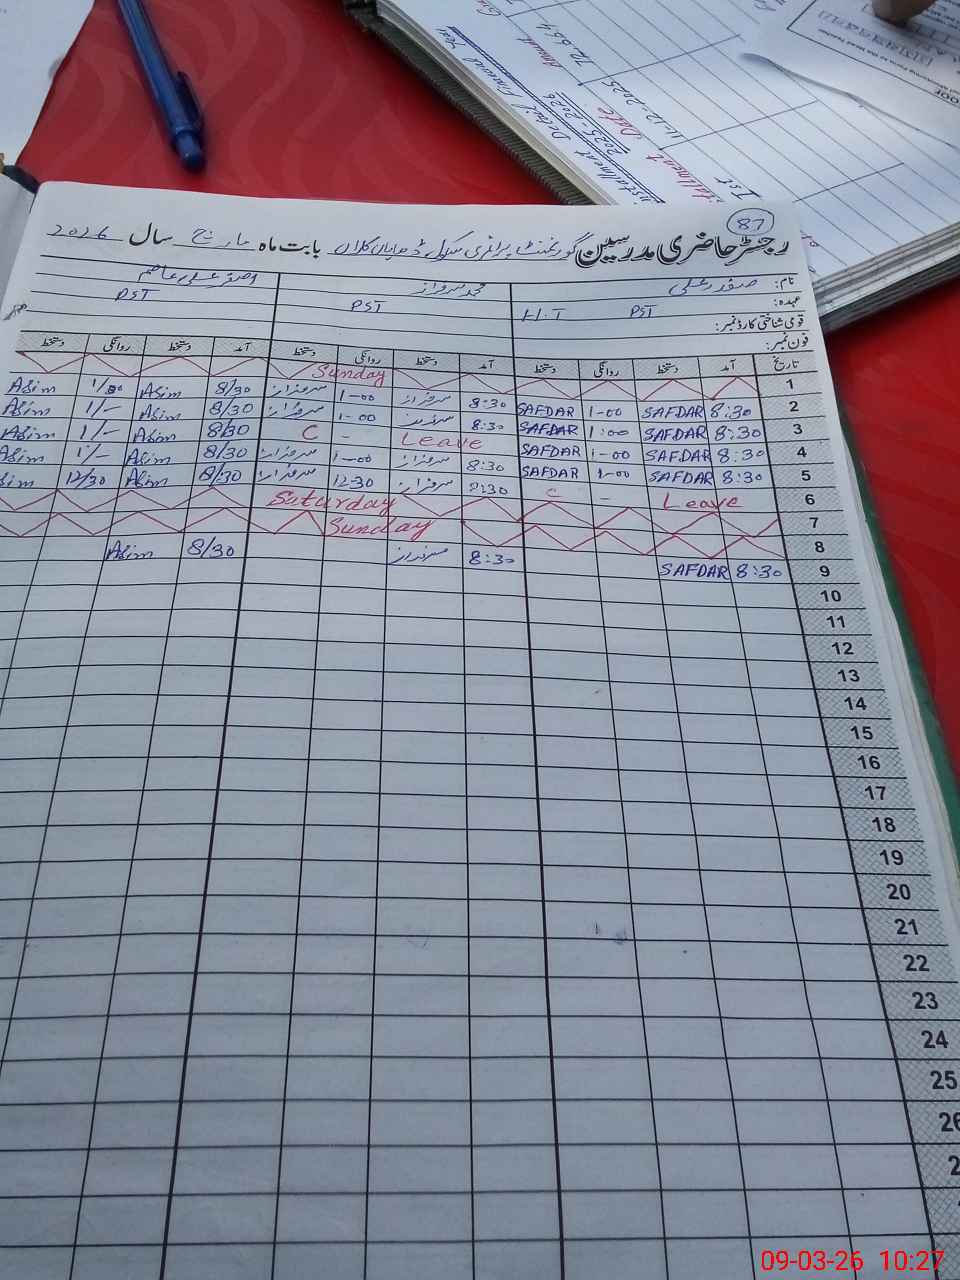 1st Installment Date 11-12-2025
Installment Detail Financial Year
2025-2026
Amount 72,664
87
رجسٹر حاضری مدرسین گورنمنٹ پرائمری سکول کلاں بابت ماہ مارچ سال 2026
نام: صفدر علی محمد سرفراز اصغر علی عاصم
عہدہ: PST H.T PST PST
قومی شناختی کارڈ نمبر:
فون نمبر:
تاریخ آمد دستخط روانگی دستخط آمد دستخط روانگی دستخط آمد دستخط روانگی دستخط
1 Sunday
2 8:30 SAFDAR 1-00 SAFDAR 8:30 سرفراز 1-00 سرفراز 8/30 Asim 1/00 Asim
3 8:30 SAFDAR 1:00 SAFDAR 8:30 سرفراز 1-00 سرفراز 8/30 Asim 1/- Asim
4 8:30 SAFDAR 1-00 SAFDAR Leave - C 8/30 Asim 1/- Asim
5 8:30 SAFDAR 1-00 SAFDAR 8:30 سرفراز 1-00 سرفراز 8/30 Asim 1/- Asim
6 Leave - C 8:30 سرفراز 12-30 سرفراز 8/30 Asim 12/30 Asim
7 Saturday
8 Sunday
9 8:30 SAFDAR 8:30 سرفراز 8/30 Asim
10
11
12
13
14
15
16
17
18
19
20
21
22
23
24
25
26
09-03-26 10:27